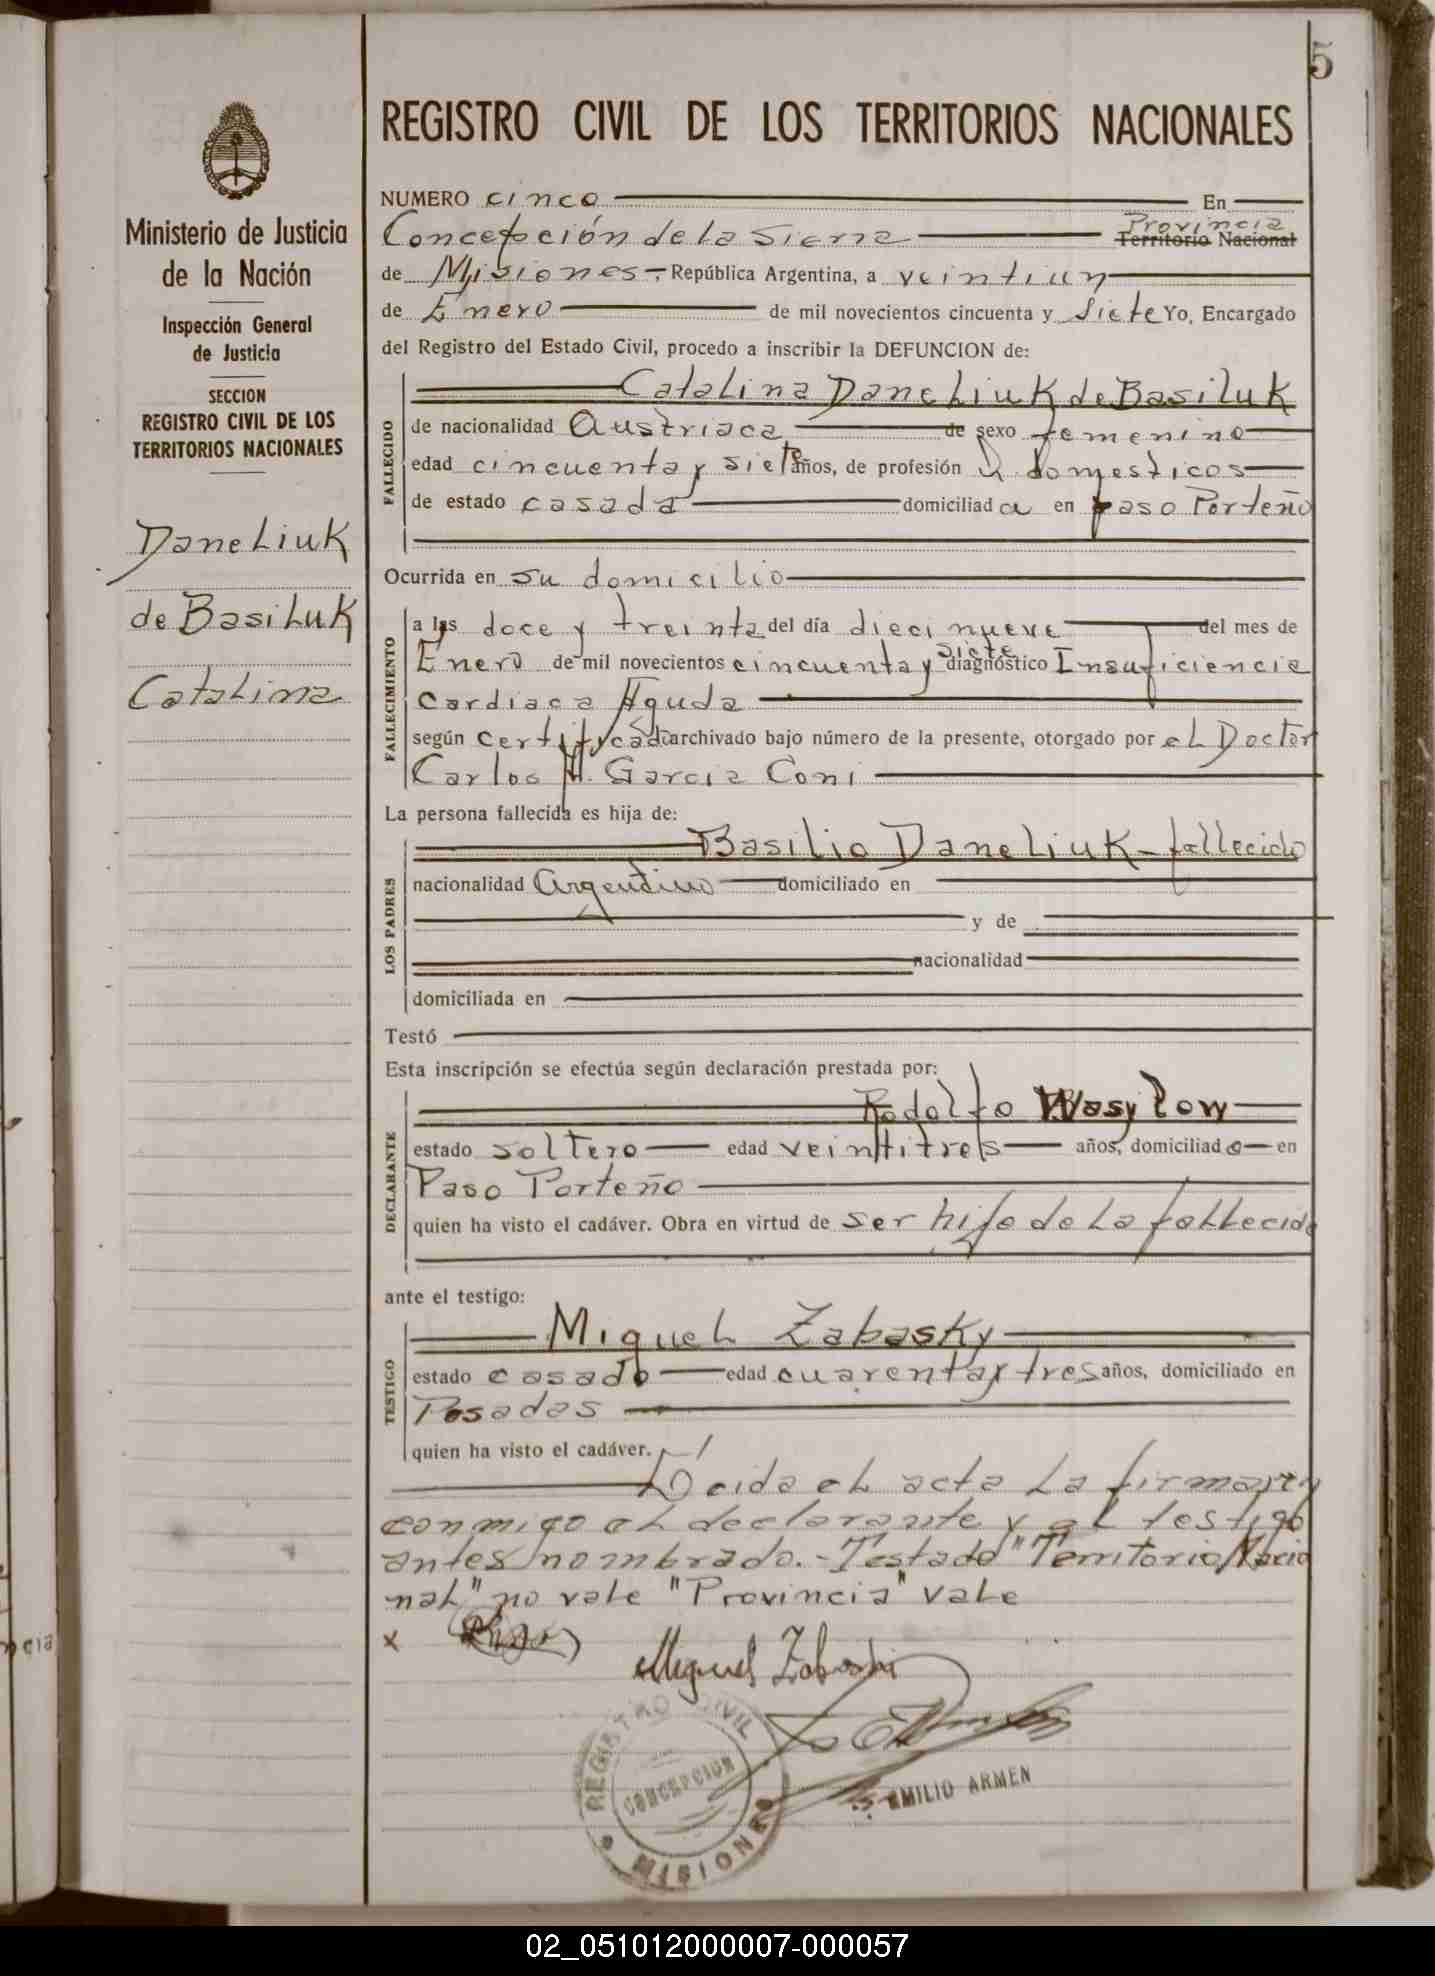 5
REGISTRO CIVIL DE LOS TERRITORIOS NACIONALES
Ministerio de Justicia
de la Nación
Inspección General
de Justicia
SECCION
REGISTRO CIVIL DE LOS
TERRITORIOS NACIONALES
Daneliuk
de Basiluk
Catalina
NUMERO cinco En
Provincia
Concepción de la Sierra Territorio Nacional
de Misiones, República Argentina, a veintiun
de Enero de mil novecientos cincuenta y siete Yo, Encargado
del Registro del Estado Civil, procedo a inscribir la DEFUNCION de:
FALLECIDO
Catalina Daneliuk de Basiluk
de nacionalidad Austriaca de sexo femenino
edad cincuenta y siete años, de profesión Q. domesticos
de estado casada domiciliada en paso Porteño
Ocurrida en su domicilio
FALLECIMIENTO
a las doce y treinta del día diecinueve del mes de
siete
Enero de mil novecientos cincuenta y diagnóstico Insuficiencia
Cardiaca Aguda
según certificado archivado bajo número de la presente, otorgado por el Doctor
Carlos H. Garcia Coni
La persona fallecida es hija de:
LOS PADRES
Basilio Daneliuk - fallecido
nacionalidad Argentino domiciliado en
y de
nacionalidad
domiciliada en
Testó
Esta inscripción se efectúa según declaración prestada por:
DECLARANTE
Rodolfo Wasylow
estado soltero edad veintitres años, domiciliado en
Paso Porteño
quien ha visto el cadáver. Obra en virtud de ser hijo de la fallecida
ante el testigo:
TESTIGO
Miguel Zabasky
estado casado edad cuarenta y tres años, domiciliado en
Posadas
quien ha visto el cadáver.
Leida el acta la firmaren
conmigo el declarante y el testigo
antes nombrado.- Testado "Territorio Nacio
nal" no vale "Provincia" vale
x
Miguel Zabaski
REGISTRO CIVIL
CONCEPCION
MISIONES
EMILIO ARMEN
ncia
02_051012000007-000057